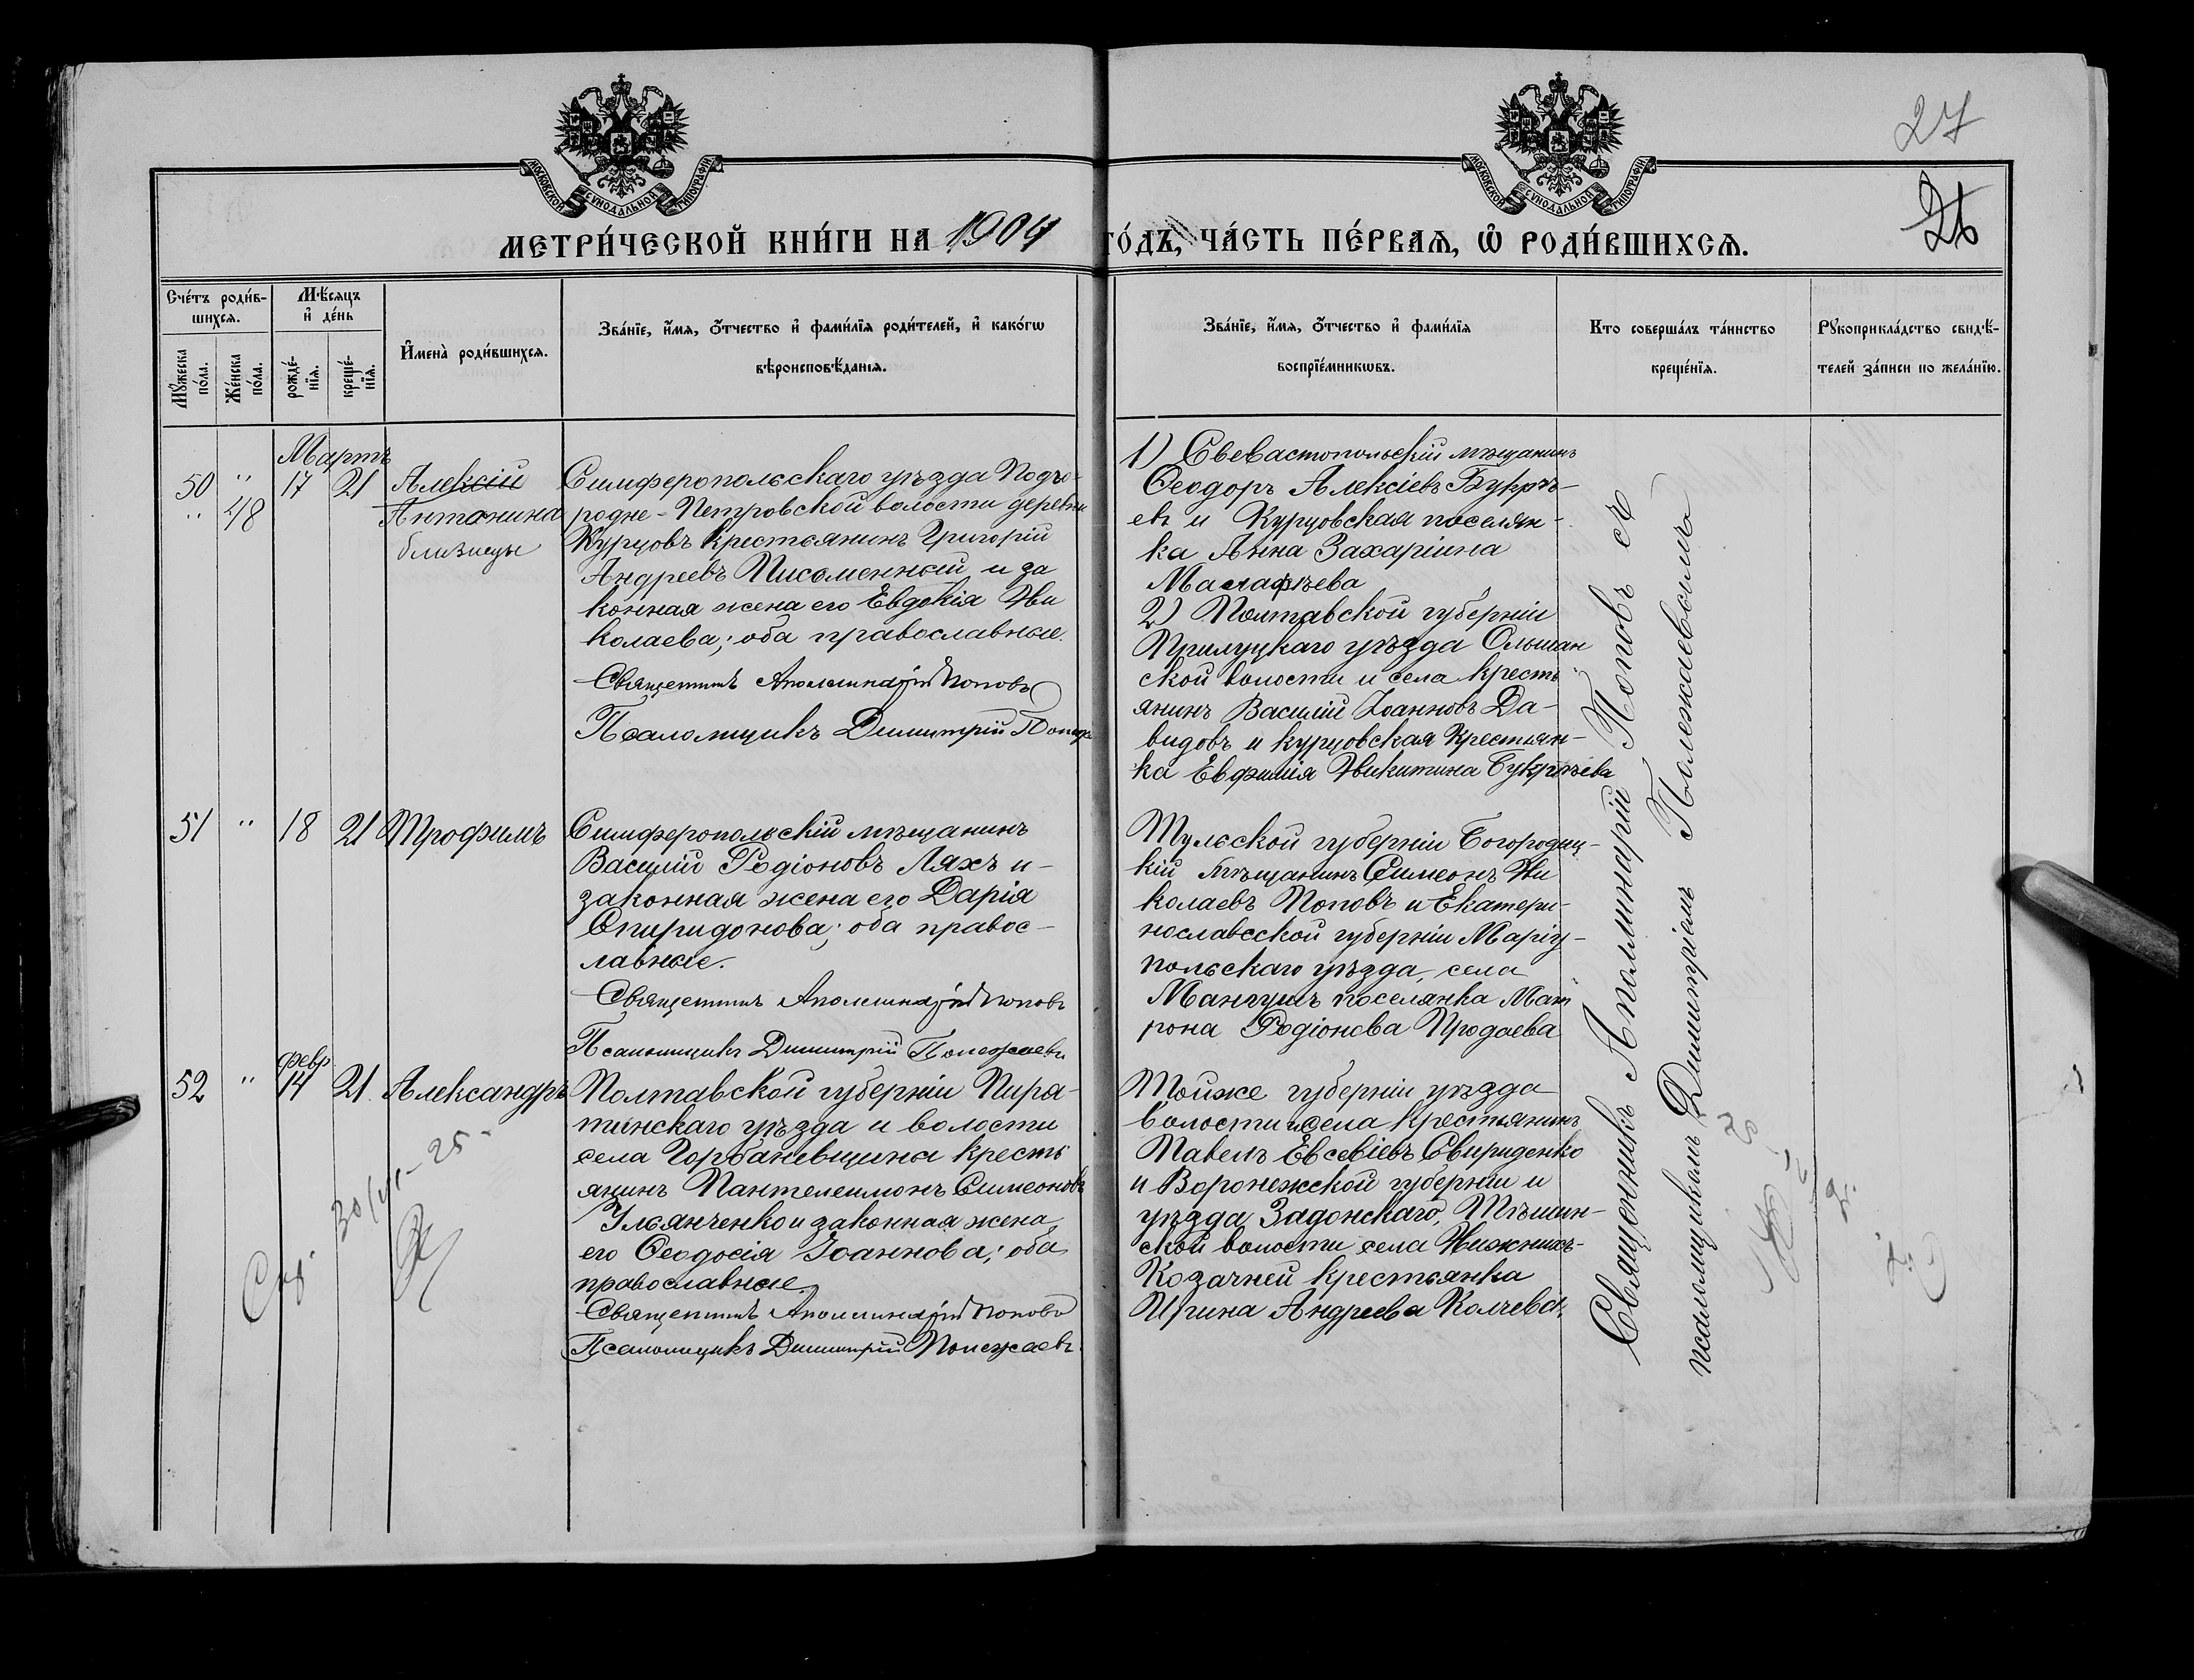 27
26
МОСКОВСКОЙ СѴНОДАЛЬНОЙ ТИПОГРАФІИ
МОСКОВСКОЙ СѴНОДАЛЬНОЙ ТИПОГРАФІИ
МЕТРИ́ЧЕСКОЙ КНИ́ГИ НА 1904 ГО́ДЪ, ЧА́СТЬ ПЕ́РВАѦ, Ѽ РОДИ́ВШИХСѦ.
Сче́тъ роди́в-
шихсѧ.
Мꙋ́жеска по́ла.
Же́нска по́ла.
Мѣ́сѧцъ
и҆ де́нь
рожде́-
нїѧ.
креще́-
нїѧ.
И҆мена̀ роди́вшихсѧ.
Зва́нїе, и҆́мѧ, ѻ҆́тчество и҆ фами́лїѧ роди́телей, и҆ како́гѡ
вѣроисповѣ́данїѧ.
Зва́нїе, и҆́мѧ, ѻ҆́тчество и҆ фами́лїѧ
воспрїе́мникѡвъ.
Кто соверша́лъ та́инство
креще́нїѧ.
Рꙋкоприкла́дство свидѣ́-
телей за́писи по жела́нїю.
Мартъ
50 " 17 21 Алексій
" 48 Антонина
близнецы
Симферопольскаго уѣзда Подго-
родне-Петровской волости деревни
Курцовъ крестьянинъ Григорій
Андреевъ Письменный и за
конная жена его Евдокія Ни
колаева; оба православные.
Священникъ Аполлинарій Поповъ
Псаломщикъ Димитрій
1) Севастопольскій мѣщанинъ
Ѳеодоръ Алексіевъ Букрѣ-
евъ и Курцовская поселян-
ка Анна Захаріина
Малафѣева
2) Полтавской губерніи
Прилуцкаго уѣзда Ольшан
ской волости и села кресть
янинъ Василій Іоанновъ Да-
видовъ и курцовская крестьян-
ка Евфимія Никитина Букрѣева
51 " 18 21 Трофимъ
Симферопольскій мѣщанинъ
Василій Родіоновъ Ляхъ и
законная жена его Дарія
Спиридонова; оба правос-
лавные.
Священникъ Аполлинарій Поповъ
Псаломщикъ Димитрій Полежаевъ
Тульской губерніи Богородиц-
кій мѣщанинъ Симеонъ Ни
колаевъ Поповъ и Екатери-
нославсской губерніи Маріу-
польскаго уѣзда, села
Мангушъ поселянка Мат
рона Родіонова Продаева
февр
52 " 14 21. Александръ
Полтавской губерніи Пиря-
тинскаго уѣзда и волости
села Горбаневщины кресть
янинъ Пантелеимонъ Симеоновъ
Ульянченко и законная жена
его Ѳеодосія Іоаннова; оба
православные.
Священникъ Аполлинарій Поповъ
Псаломщикъ Димитрій Полежаевъ.
Тойже губерніи уѣзда
волости и села крестьянинъ
Павелъ Евсевіевъ Свириденко
и Воронежской губерніи и
уѣзда Задонскаго,
ской волости села Нижнихъ-
Козачей крестьянка
Ирина Андреева Колчева.
Священникъ Аполлинарій Поповъ съ
псаломщикомъ Димитріемъ Полежаевымъ